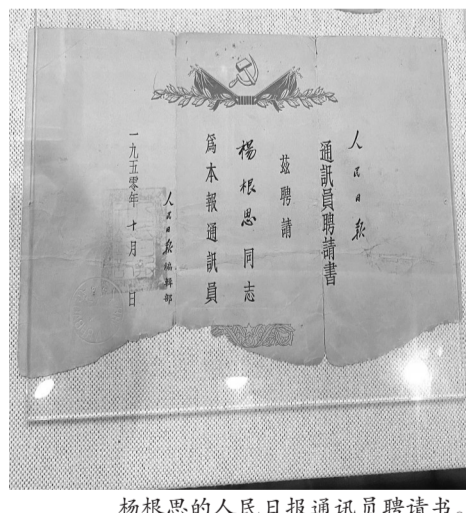 人民日报
通訊員聘請書
茲聘請
楊根思同志
爲本報通訊員
人民日报編輯部
一九五零年十月 日
杨根思的人民日报通讯员聘请书。